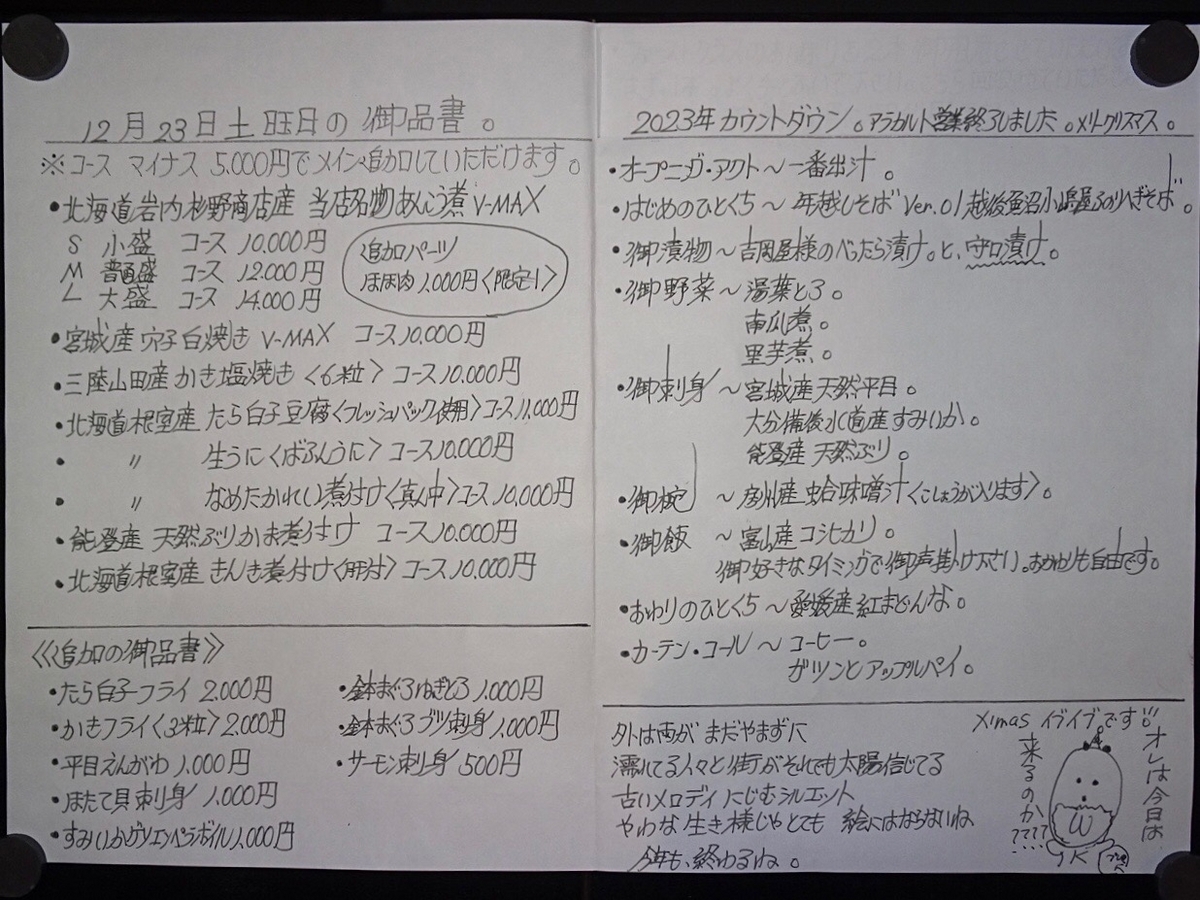 12月23日土曜日の御品書。
※コース マイナス 5.000円でメイン追加していただけます。
・北海道岩内杉野商店産 当店名物あんこう煮 V-MAX
S 小盛 コース 10.000円
M 普通盛 コース 12.000円
L 大盛 コース 14.000円
追加パーツ
ほほ肉 1.000円〈限定1〉
・宮城産 穴子白焼き V-MAX コース10.000円
・三陸山田産 かき塩焼き〈6粒〉 コース10.000円
・北海道根室産 たら白子豆腐〈フレッシュパック使用〉コース11.000円
・ 〃 生うに〈ばふんうに〉コース10.000円
・ 〃 なめたかれい煮付け〈真ん中〉コース10.000円
・能登産 天然ぶりかま煮付け コース10.000円
・北海道根室産 きんき煮付け〈肝付〉コース10.000円
《追加の御品書》
・たら白子フライ 2.000円
・かきフライ〈3粒〉2.000円
・平目えんがわ 1.000円
・ほたて貝刺身 1.000円
・すみいかゲソエンペラボイル1.000円
・鉢本まぐろねぎとろ1.000円
・鉢本まぐろブツ刺身1.000円
・サーモン刺身 500円
2023年カウントダウン。アラカルト営業終了しました。メリークリスマス。
・オープニング・アクト〜一番出汁。
・はじめのひとくち〜年越しそば Ver.01越後魚沼小嶋屋ふのりへぎそば。
・御漬物〜吉岡屋様のべったら漬け。と、守口漬け。
・御野菜〜湯葉とろ。
南瓜煮。
里芋煮。
・御刺身〜宮城産天然平目。
大分備後水道産すみいか。
能登産 天然ぶり。
・御椀 〜房州産 蛤味噌汁〈こしょうが入ります〉。
・御飯 〜富山産コシヒカリ。
御好きなタイミングで御声掛け下さい。おかわりも自由です。
・おわりのひとくち〜愛媛産紅まどんな。
・カーテン・コール〜コーヒー。
ガツンとアップルパイ。
外は雨が まだやまずに
濡れてる人々と街がそれでも太陽信じてる
古いメロディ にじむシルエット
やわな生き様じゃとても 絵にはならないね
今年も、終わるね。
X'mas イブイブです!!
オレは今日は
来るのか
????
JK